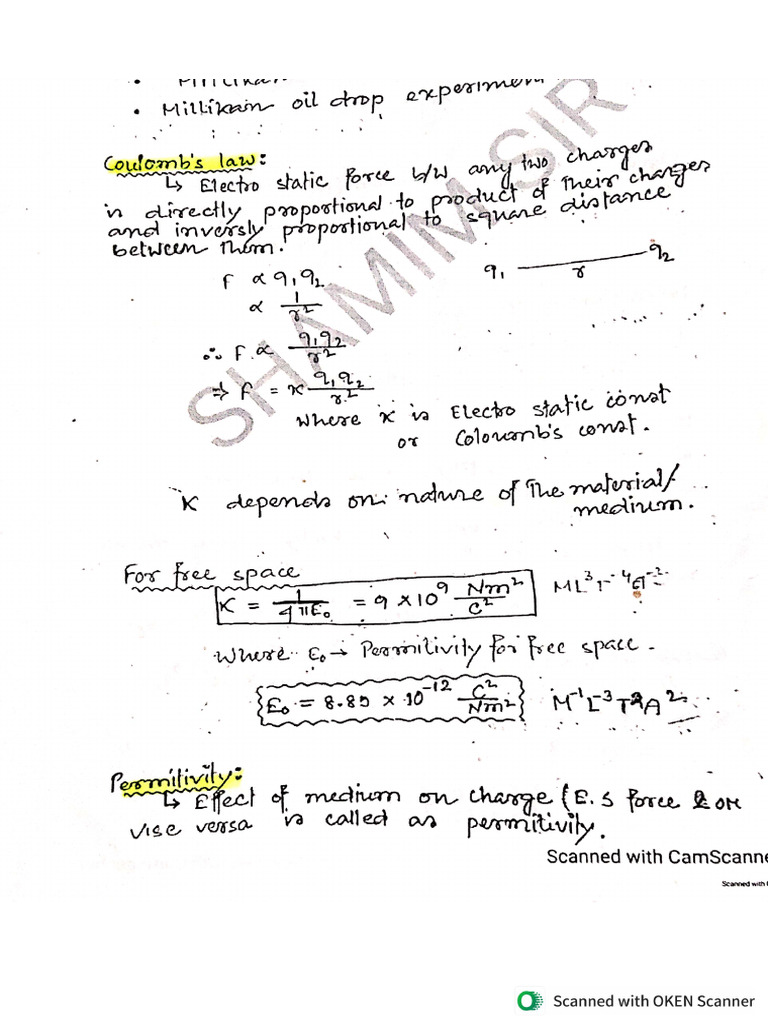 • Millikan
• Millikan oil drop experiment
Coulomb's law:
↳ Electro static force b/w any two charges
is directly proportional to product of Their charges
and inversly proportional to square distance
between Them.
F ∝ q₁q₂
q₁ r q₂
∝ 1/r²
∴ F ∝ q₁q₂/r²
⇒ F = K q₁q₂/r²
Where K is Electro static const
or Coloumb's const.
K depends on nature of The material/
medium.
For free space
K = 1/4πε₀ = 9 × 10⁹ Nm²/C²
Where ε₀ → Permitivity for free space.
ε₀ = 8.85 × 10⁻¹² C²/Nm²
Permitivity:
↳ Effect of medium on charge (E.S force & or
vise versa is called as permitivity.
SHAMIM SIR
Scanned with CamScanne
Scanned with
Scanned with OKEN Scanner